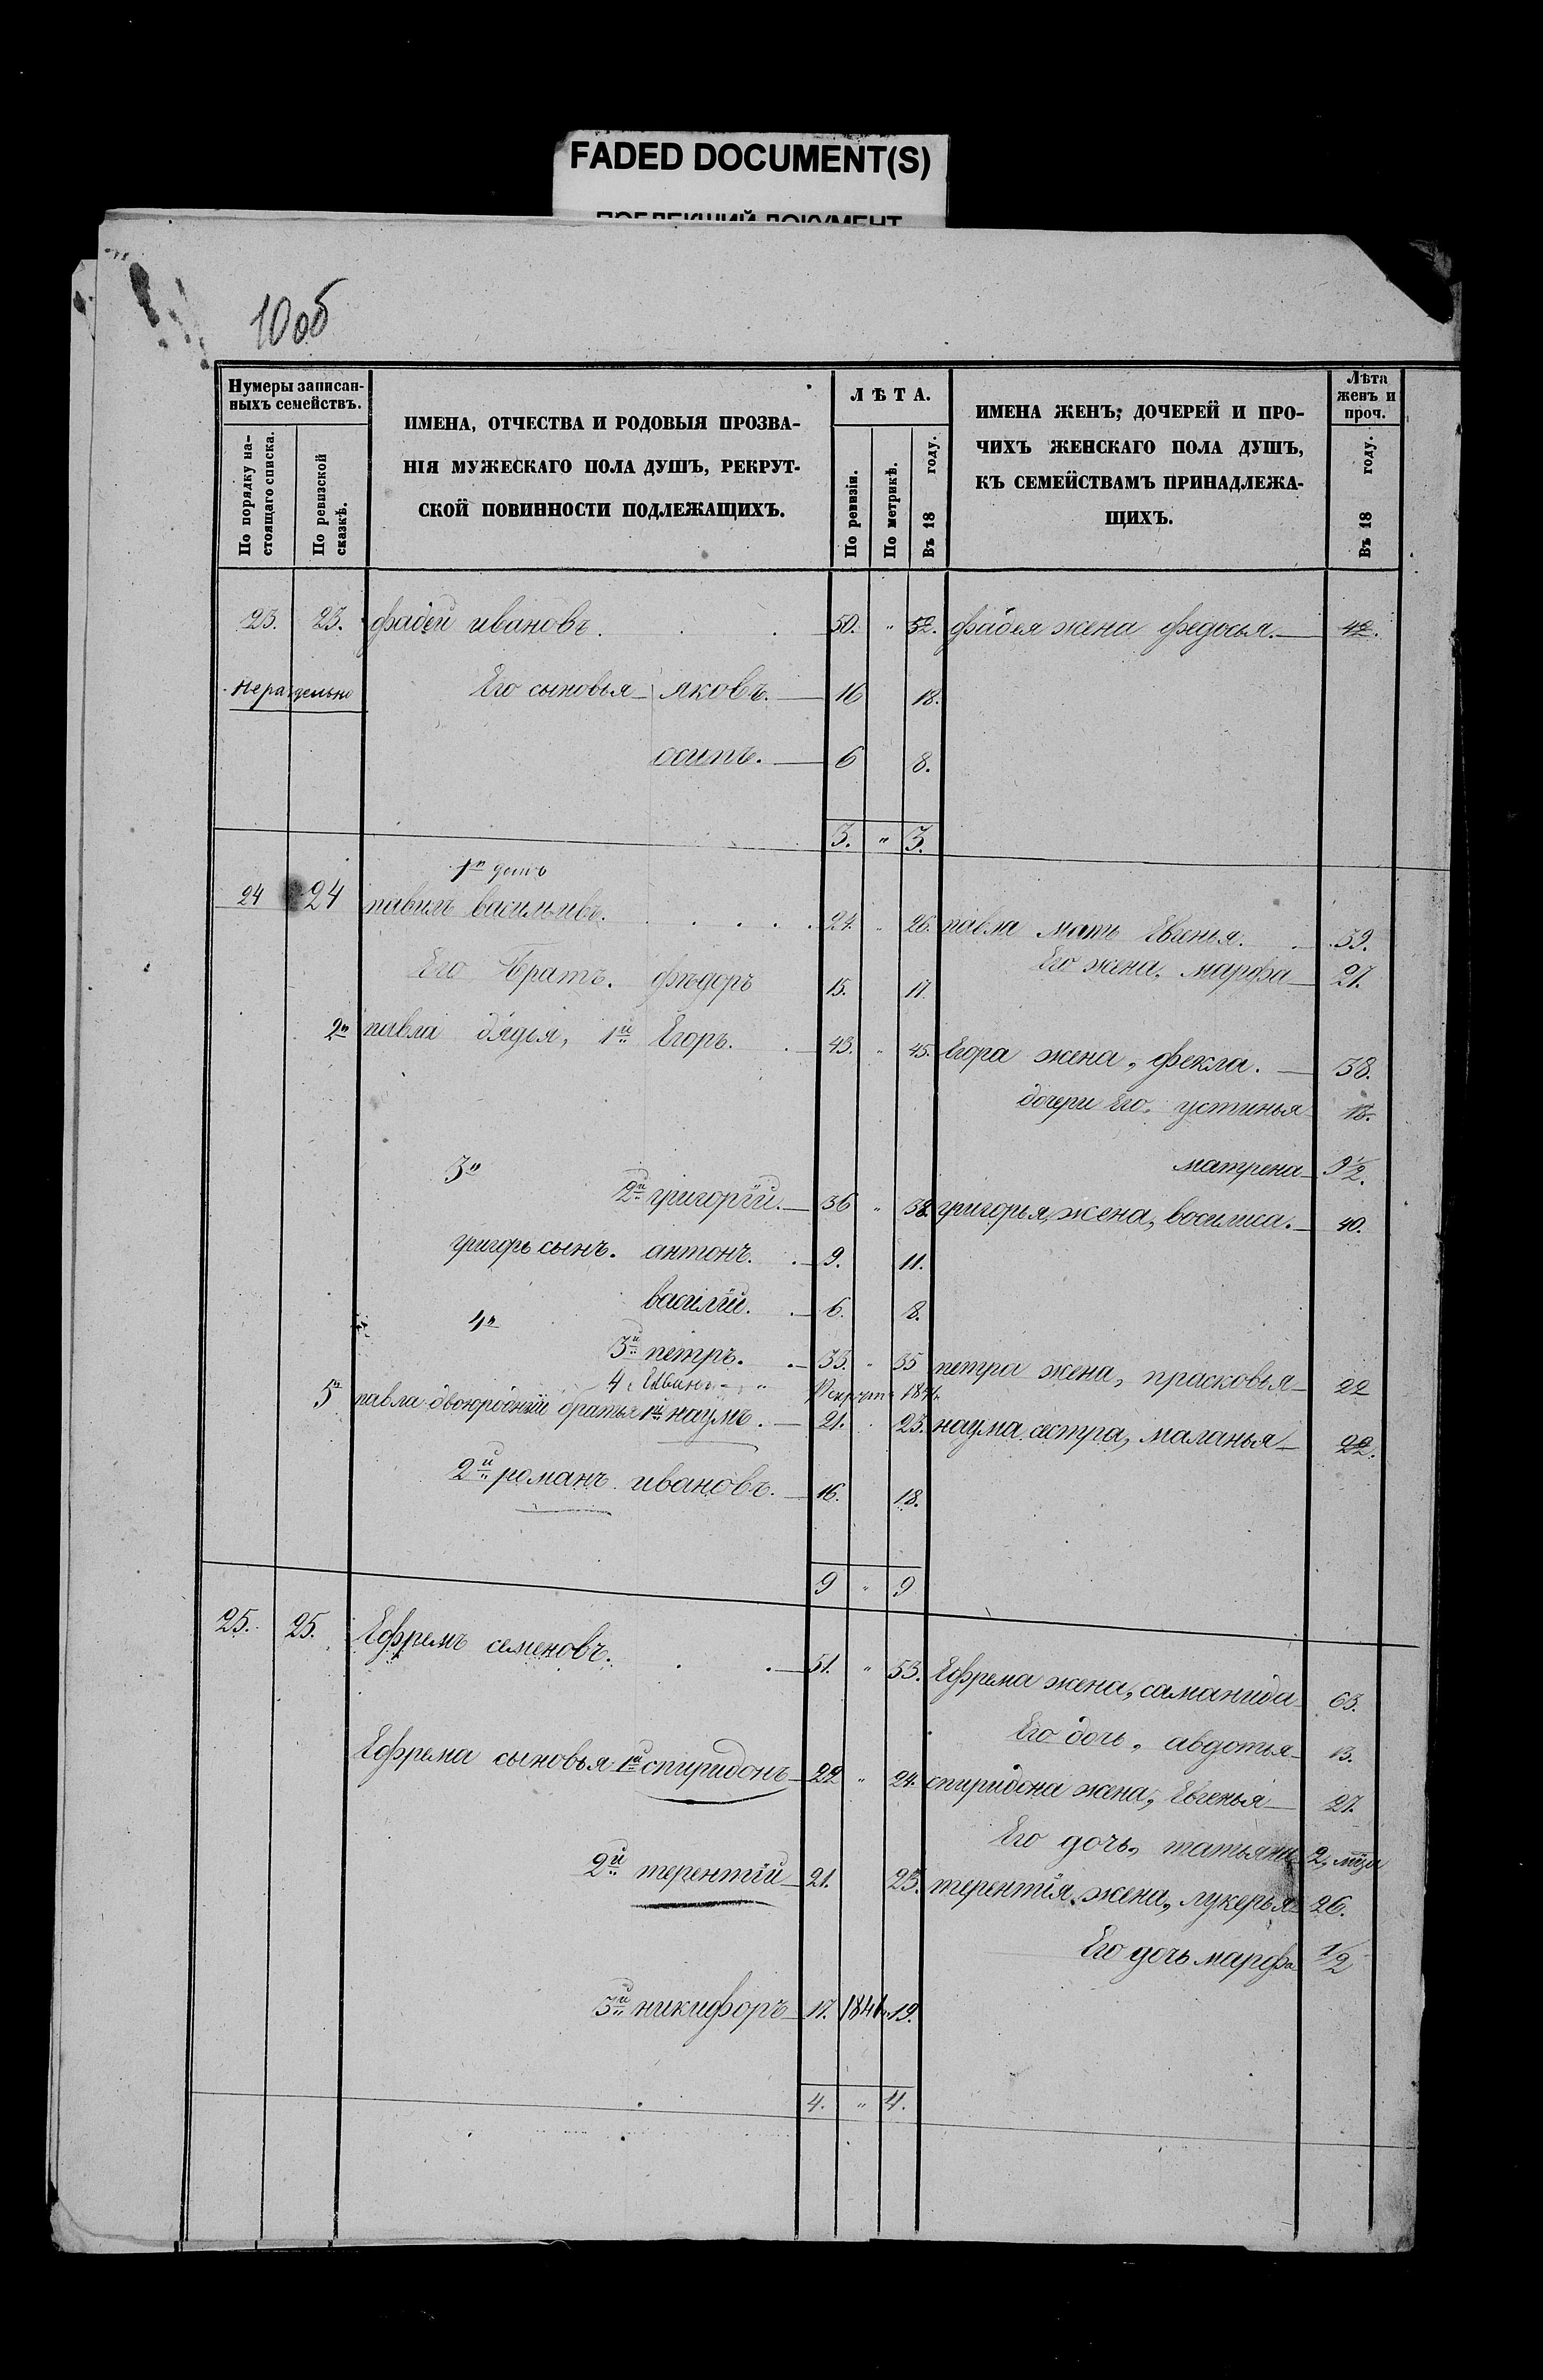 FADED DOCUMENT(S)
10 об
Нумеры записан-
ныхъ семействъ.
По порядку на-
стоящаго списка.
По ревизской
сказкѣ.
ИМЕНА, ОТЧЕСТВА И РОДОВЫЯ ПРОЗВА-
НІЯ МУЖЕСКАГО ПОЛА ДУШЪ, РЕКРУТ-
СКОЙ ПОВИННОСТИ ПОДЛЕЖАЩИХЪ.
ЛѢТА.
По ревизіи.
По метрикѣ.
Въ 18 году.
ИМЕНА ЖЕНЪ, ДОЧЕРЕЙ И ПРО-
ЧИХЪ ЖЕНСКАГО ПОЛА ДУШЪ,
КЪ СЕМЕЙСТВАМЪ ПРИНАДЛЕЖА-
ЩИХЪ.
Лѣта
женъ и
проч.
Въ 18 году.
23. 23. фадей ивановъ. 50. " 52. фадея жена федосья. 42.
нераздельно Его сыновья яковъ. 16 18.
осипъ. 6 8.
3. " 3.
1й
24 24 павилъ васильивъ. 24. " 26. павла мать Евгенья. 59.
Его жена, марфа 27.
Его братъ. фѣдоръ 15. 17.
2й павла дядья, 1й Егоръ. 43. " 45. Егора жена, фекла. 38.
дочери Его. устинья 18.
матрена 9 1/2.
3й
2й григорій. 36 " 38. григорья, жена, восилиса. 40.
григорь сынъ. антонъ. 9. 11.
василій. 6. 8.
4й
3й петръ. 33. " 35 петра жена, прасковья 22
4 рекрутъ 1841
5й павла двоюродніи братья 1й наумъ. 21. 23. наума сестра, маланья 22.
2й романъ ивановъ. 16. 18.
9 " 9
25. 25. Ефремъ семеновъ. 51. " 53. Ефрема жена, саманида 63.
Его дочь, авдотья 13.
Ефрема сыновья 1й спиридонъ 22 " 24. спиридона жена, Евгенья 27.
Его дочь, татьяна 2,
2й терентій 21. 23. терентія жена, лукерья 26.
Его дочь марфа 1/2
3й никифоръ 17. 1841 19.
4. " 4.